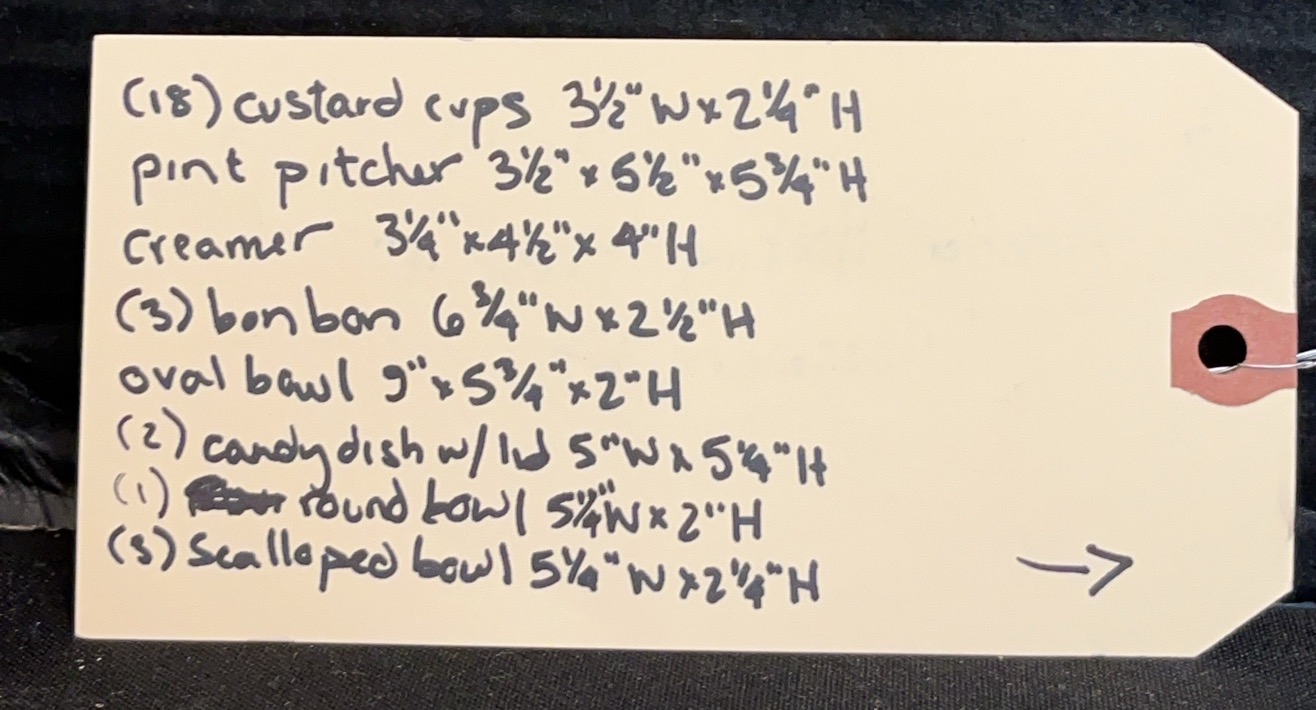 (18) custard cups 3½" W x 2¼" H
pint pitcher 3½" x 5½" x 5¾" H
creamer 3¼" x 4½" x 4" H
(3) bonbon 6¾" W x 2½" H
oval bowl 9" x 5¾" x 2" H
(2) candy dish w/ lid 5" W x 5¼" H
(1) round bowl 5¼" W x 2" H
Scalloped bowl 5¼" W x 2¼" H
→